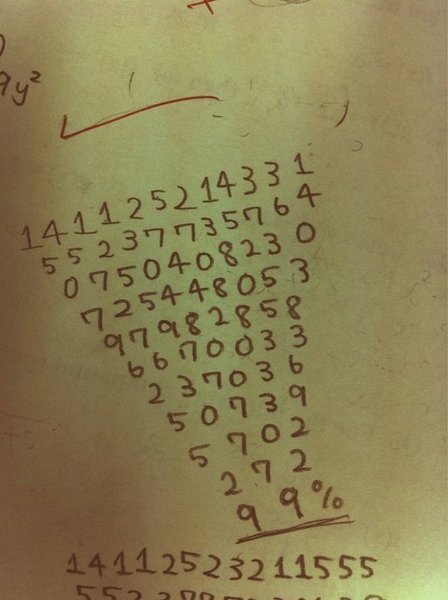 9y²
1 4 1 1 2 5 2 1 4 3 3 1
5 5 2 3 7 7 3 5 7 6 4
0 7 5 0 4 0 8 2 3 0
7 2 5 4 4 8 0 5 3
9 7 9 8 2 8 5 8
6 6 7 0 0 3 3
2 3 7 0 3 6
5 0 7 3 9
5 7 0 2
2 7 2
9 9%
14112523211555